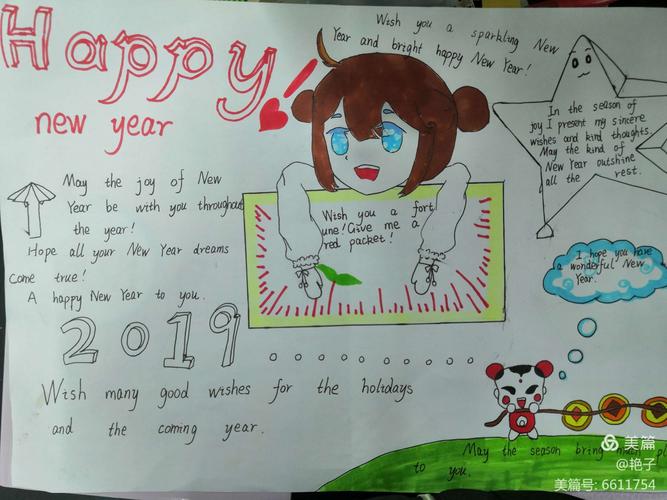 Happy!
new year
Wish you a sparkling New
Year and bright happy New Year!
In the season of
joy I present my sincere
wishes and kind thoughts.
May the kind of
New Year outshine
all the rest.
May the joy of New
Year be with you throughout
the year!
Hope all your New Year dreams
come true!
A happy New Year to you.
Wish you a fort
une! Give me a
red packet!
I hope you have
a wonderful New
Year.
2019
Wish many good wishes for the holidays
and the coming year.
May the season bring
to you.
美篇
@艳子
美篇号: 6611754